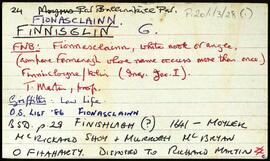 24 Moyrus Par Ballinakill Par.
P.201/3/28 (1)
FIONASCLAINN
FINNISGLIN G.
FNB: Fionnasclainn, white nook or angle,
(compare Fermanagh whose name occurs more than once)
T. Martin, prop.
Griffith: Law Life
O.S. LIST '86 FIONASCLAINN
BSD. p 29 FINISHLAGH (?) 1641 – MOYLER
McRICKARD SHOY + MURROGH McBRYAN
O FLAHARTY. DISPOTED TO RICHARD MARTIN